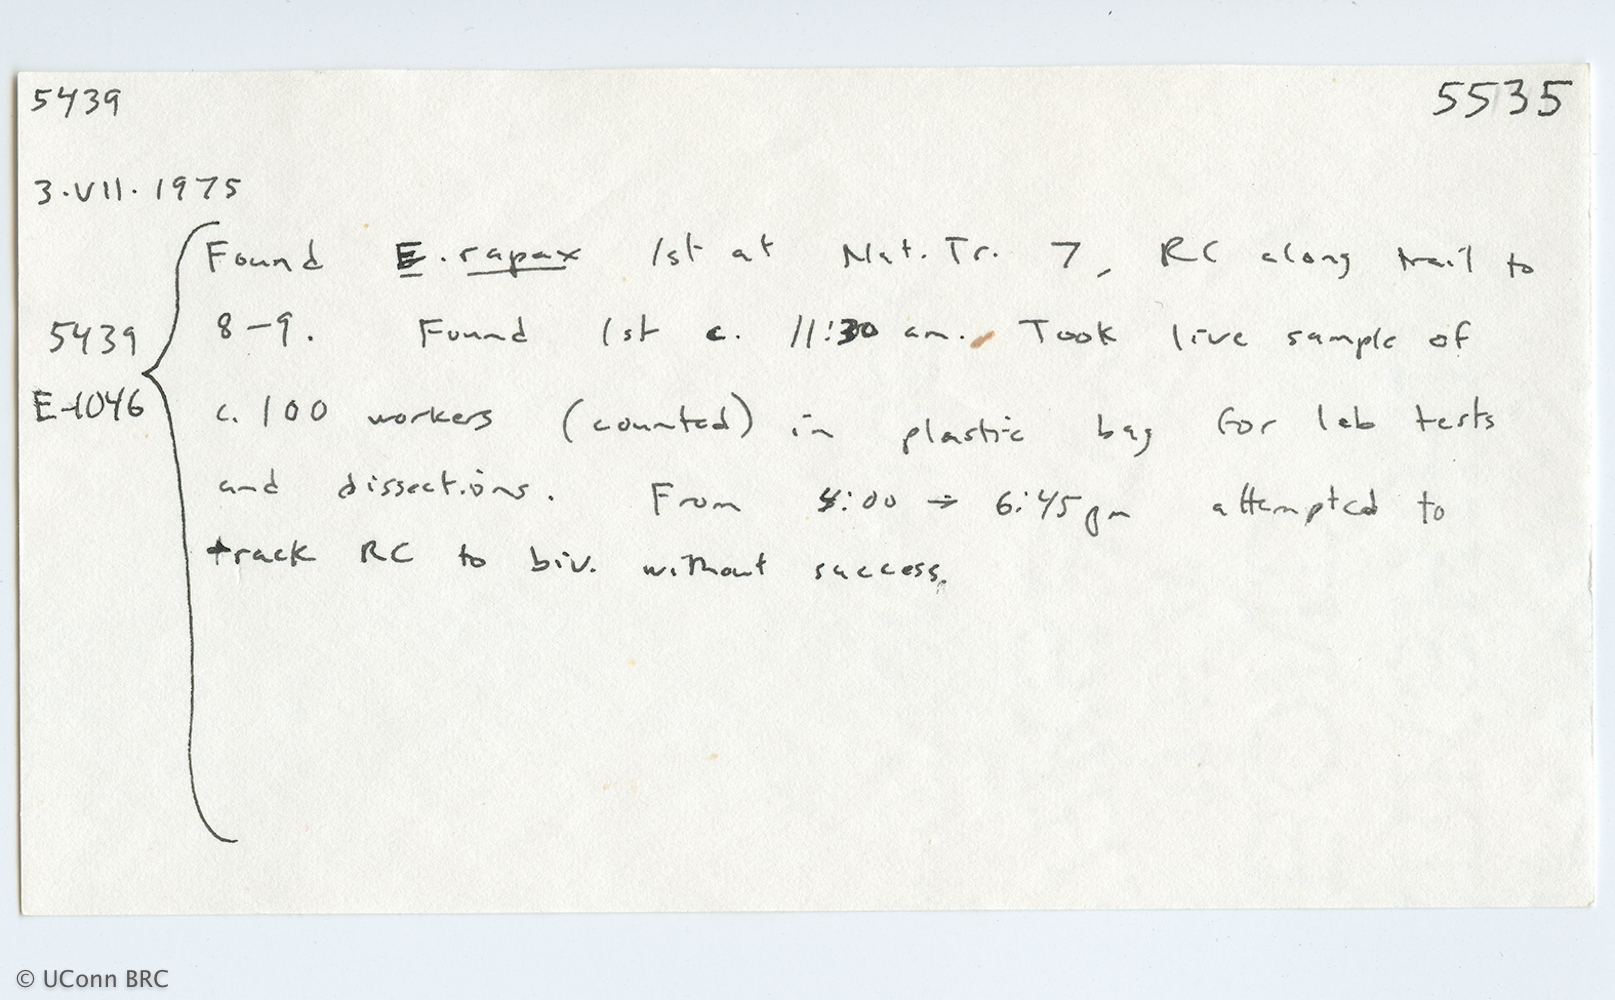 5439 5535
3.VII.1975
Found E. rapax 1st at Nat. Tr. 7, RC along trail to
5439 8-9. Found 1st c. 11:30 am. Took live sample of
E-1046 c. 100 workers (counted) in plastic bag for lab tests
and dissections. From :00 → 6:45 pm attempted to
track RC to biv. without success.
© UConn BRC